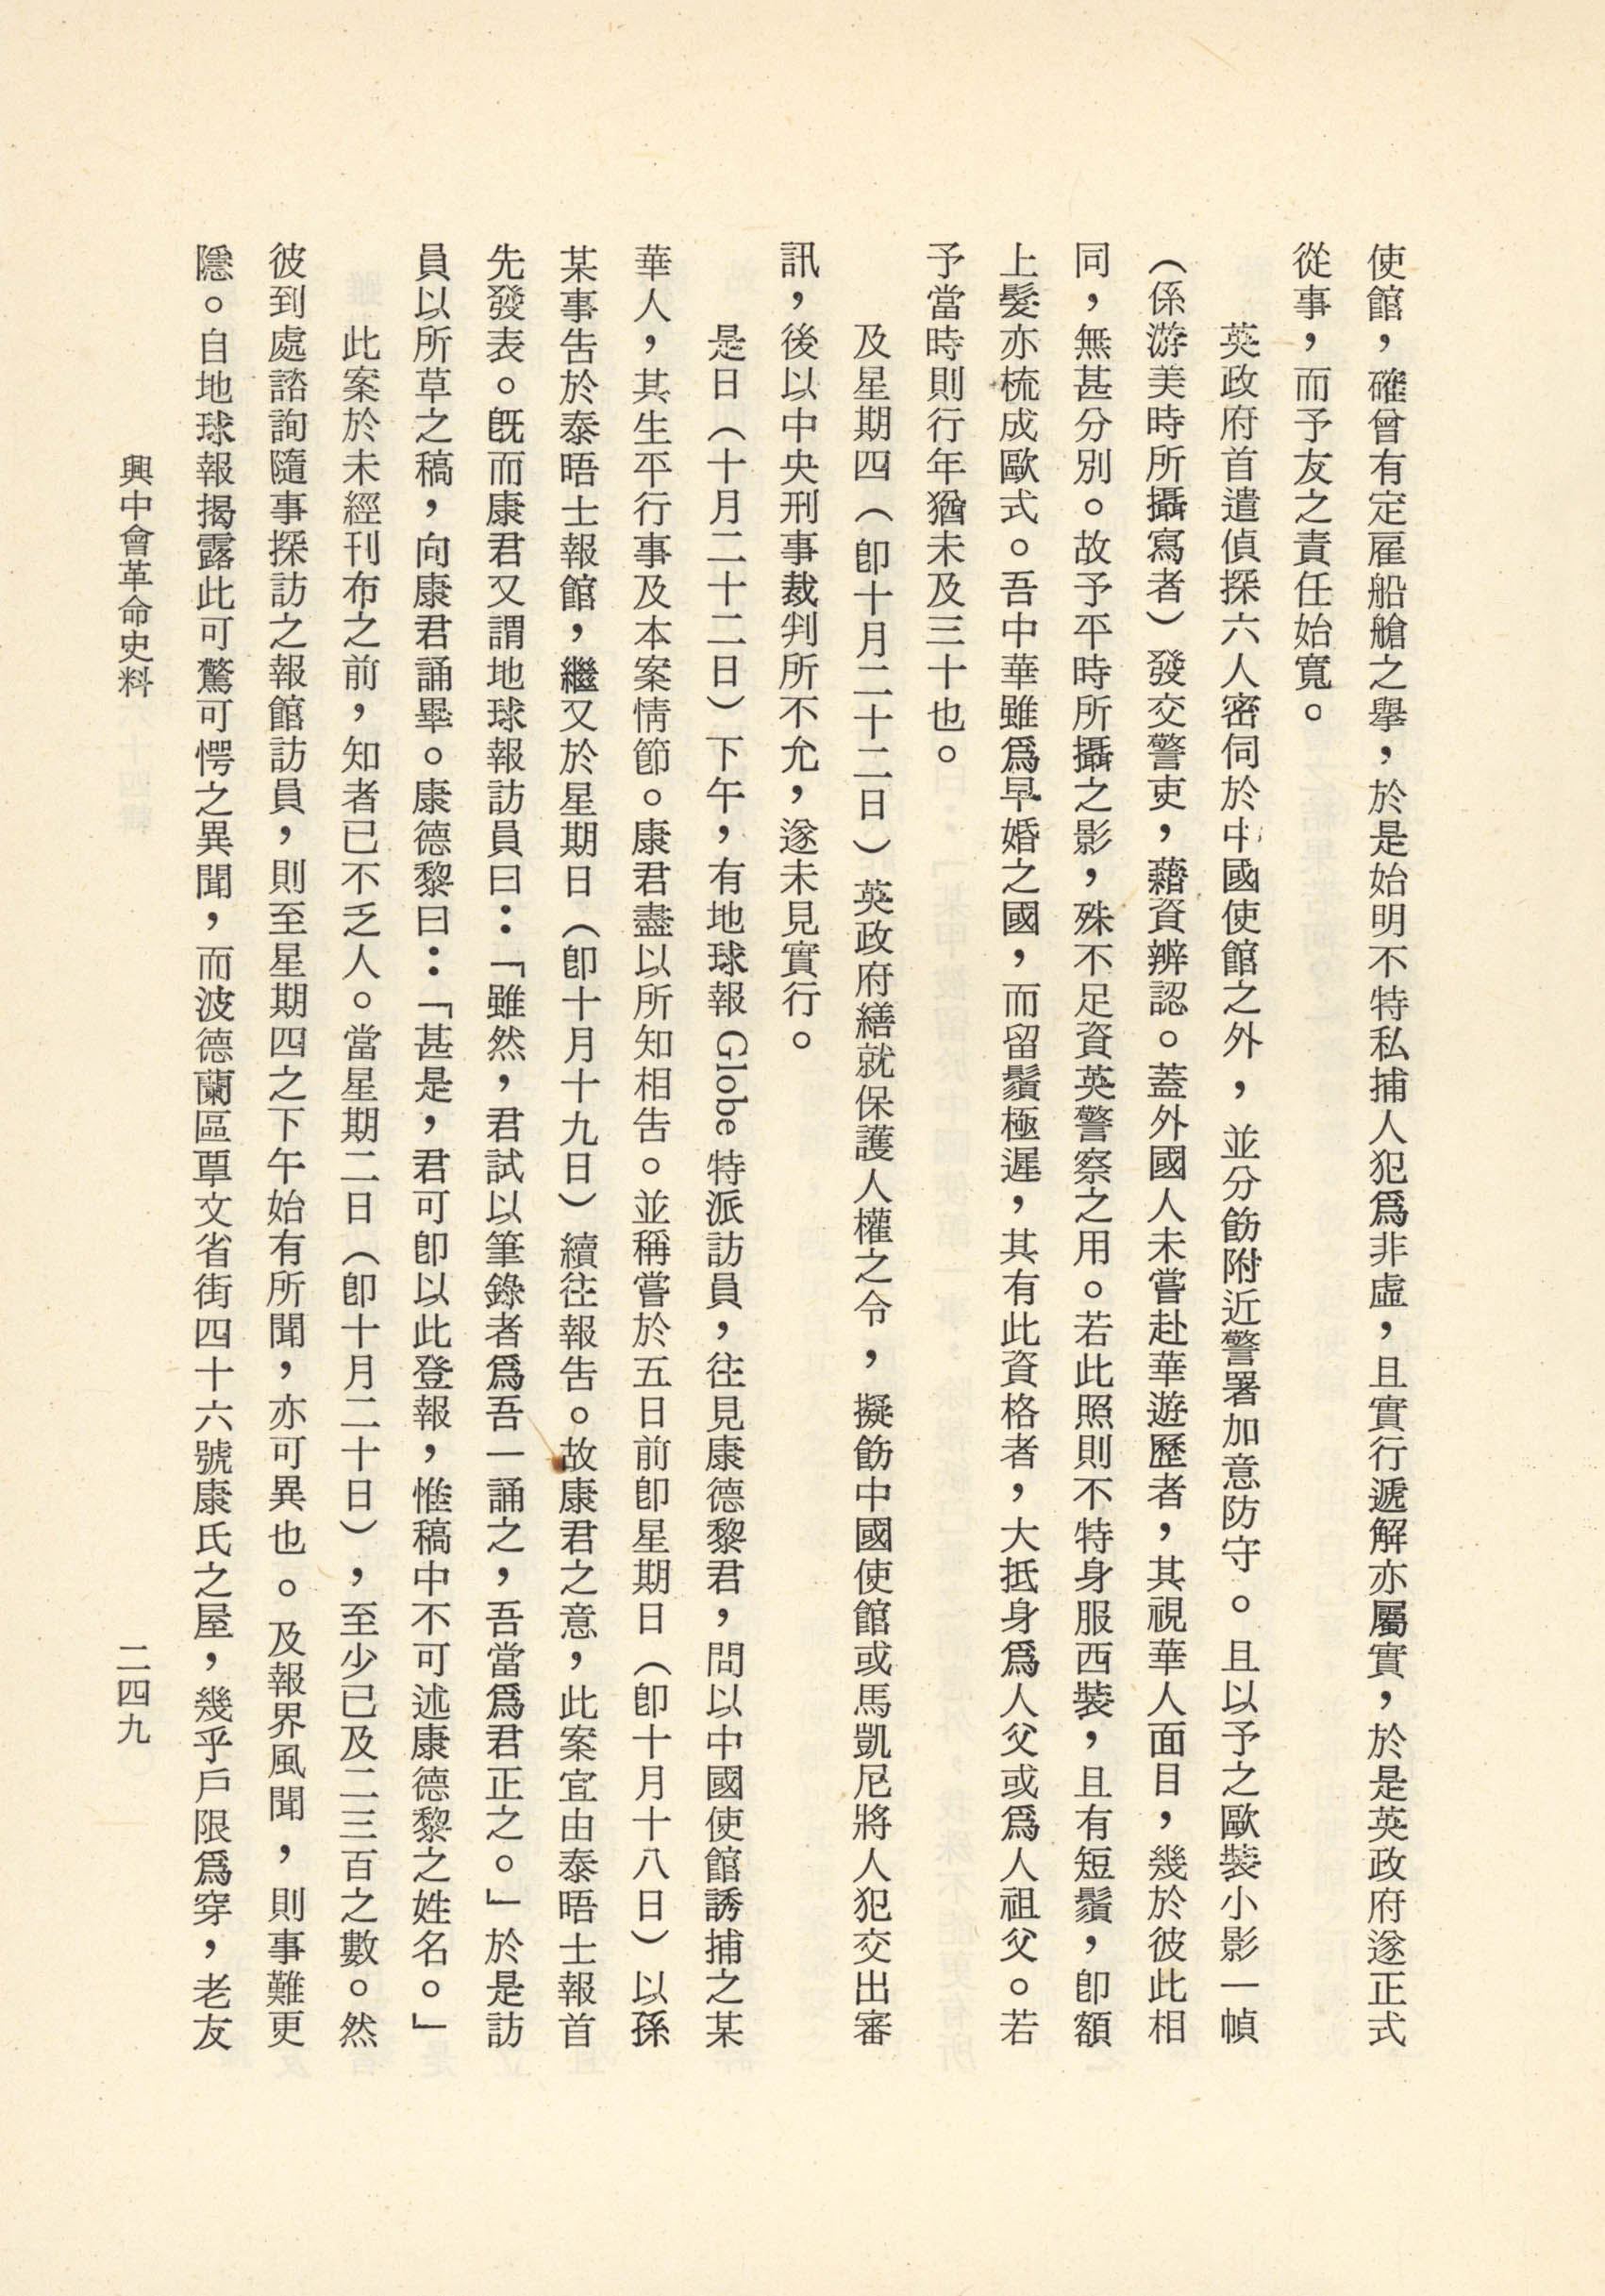 使館，確曾有定雇船艙之舉，於是始明不特私捕人犯爲非虛，且實行遞解亦屬實，於是英政府遂正式
從事，而予友之責任始寬。
英政府首遣偵探六人密伺於中國使館之外，並分飭附近警署加意防守。且以予之歐裝小影一幀
（係游美時所攝寫者）發交警吏，藉資辨認。蓋外國人未嘗赴華遊歷者，其視華人面目，幾於彼此相
同，無甚分別。故予平時所攝之影，殊不足資英警察之用。若此照則不特身服西裝，且有短鬚，卽額
上髮亦梳成歐式。吾中華雖爲早婚之國，而留鬚極遲，其有此資格者，大抵身爲人父或爲人祖父。若
予當時則行年猶未及三十也。
及星期四（卽十月二十二日）英政府繕就保護人權之令，擬飭中國使館或馬凱尼將人犯交出審
訊，後以中央刑事裁判所不允，遂未見實行。
是日（十月二十二日）下午，有地球報 Globe 特派訪員，往見康德黎君，問以中國使館誘捕之某
華人，其生平行事及本案情節。康君盡以所知相告。並稱嘗於五日前卽星期日（卽十月十八日）以孫
某事告於泰晤士報館，繼又於星期日（卽十月十九日）續往報告。故康君之意，此案宜由泰晤士報首
先發表。旣而康君又謂地球報訪員曰：「雖然，君試以筆錄者爲吾一誦之，吾當爲君正之。」於是訪
員以所草之稿，向康君誦畢。康德黎曰：「甚是，君可卽以此登報，惟稿中不可述康德黎之姓名。」
此案於未經刊布之前，知者已不乏人。當星期二日（卽十月二十日），至少已及二三百之數。然
彼到處諮詢隨事探訪之報館訪員，則至星期四之下午始有所聞，亦可異也。及報界風聞，則事難更
隱。自地球報揭露此可驚可愕之異聞，而波德蘭區覃文省街四十六號康氏之屋，幾乎戶限爲穿，老友
興中會革命史料
二四九